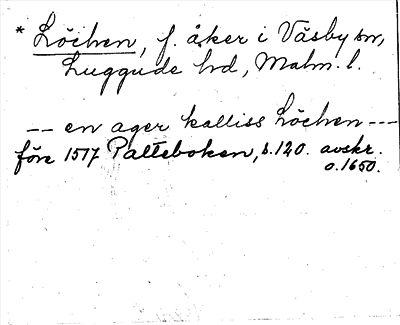 * Löchen, f. åker i Väsby sn,
Luggude hd, Malm. l.
-- en ager kalliss Löchen ---
före 1517 Palteboken, s. 120. avskr.
o. 1650.